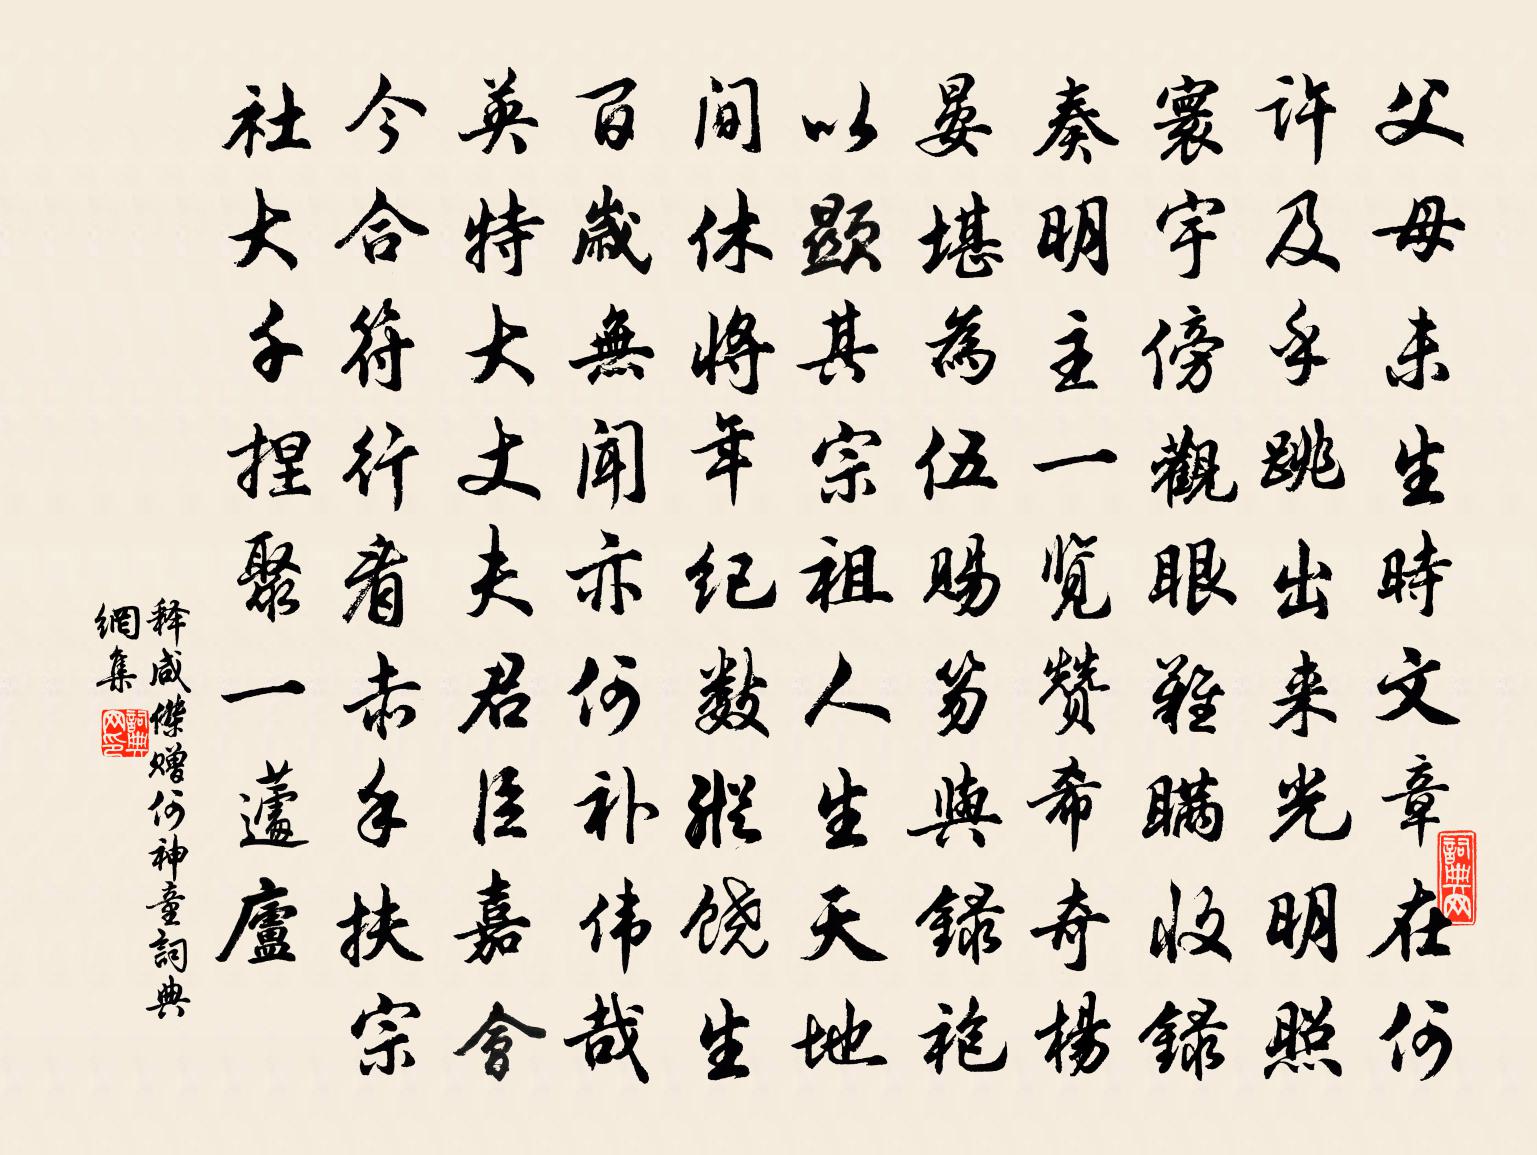 父母未生時文章在何
许及乎跳出来光明照
寰宇傍觀眼難瞞收録
奏明主一览赞希奇楊
晏堪為伍賜笏與録袍
以顯其宗祖人生天地
间休將年纪数縱饶生
百歲無闻亦何补伟哉
英特大丈夫君臣嘉會
今合符行看赤手扶宗
社大千捏聚一蘧廬
释咸傑赠何神童詞典
網集
詞典网
詞典网印